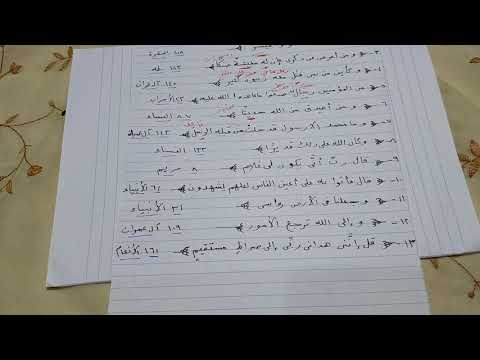 ١٠٨ البقرة
٣- ﴿ ومن أعرض عن ذكري فإن له معيشة ضنكا ﴾ طه
٤- ﴿ وكأين من نبي قتل معه ربيون كثير ﴾ آل عمران
٥- ﴿ من المؤمنين رجال صدقوا ما عاهدوا الله عليه ﴾ ٢٣ الأحزاب
٦- ﴿ ومن أصدق من الله حديثا ﴾ ٨٧ النساء
﴿ وما محمد إلا رسول قد خلت من قبله الرسل ﴾ ١٤٤
﴿ وكان الله على ذلك قديرا ﴾ ١٣٣ النساء
٩- ﴿ قال رب أنى يكون لي غلام ﴾ ٨ مريم
١٠- ﴿ قال فأتوا به على أعين الناس لعلهم يشهدون ﴾ ٦١ الأنبياء
١١- ﴿ وجعلنا في الأرض رواسي ﴾ ٣١ الأنبياء
١٢- ﴿ وإلى الله ترجع الأمور ﴾ ١٠٩ آل عمران
١٣- ﴿ قل إنني هداني ربي إلى صراط مستقيم ﴾ ١٦١ الأنعام